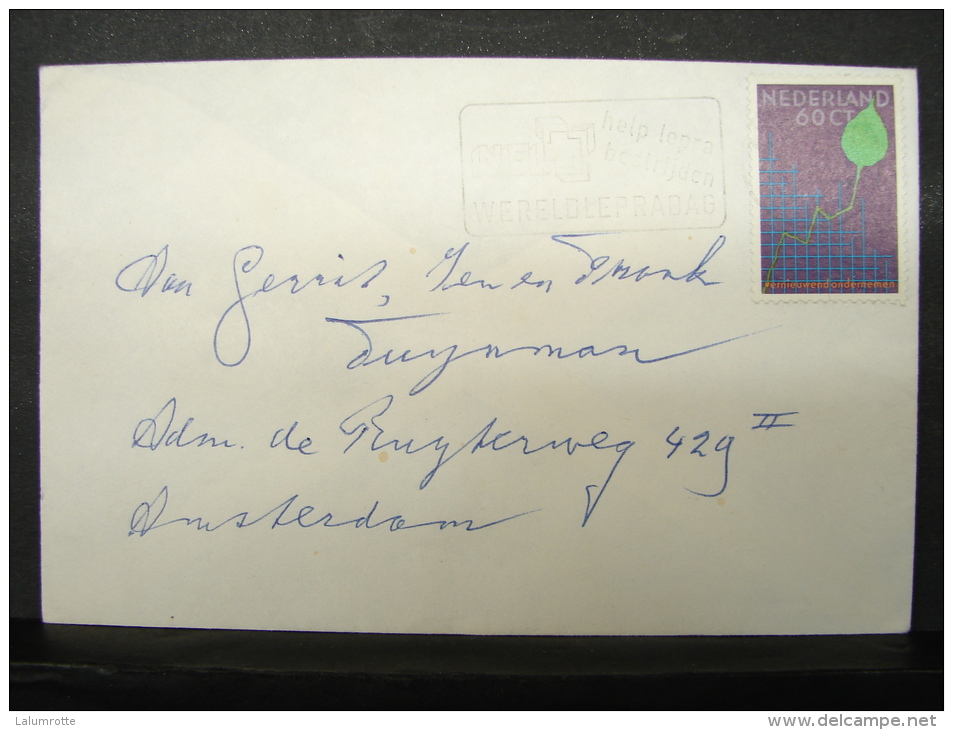 help lepra
bestrijden
WERELDLEPRADAG
NEDERLAND
60CT
vernieuwend ondernemen
Aan Gerrit, Ien en
Duynman
Adm. de Ruyterweg 429 II
Amsterdam
Lalumrotte
www.delcampe.net